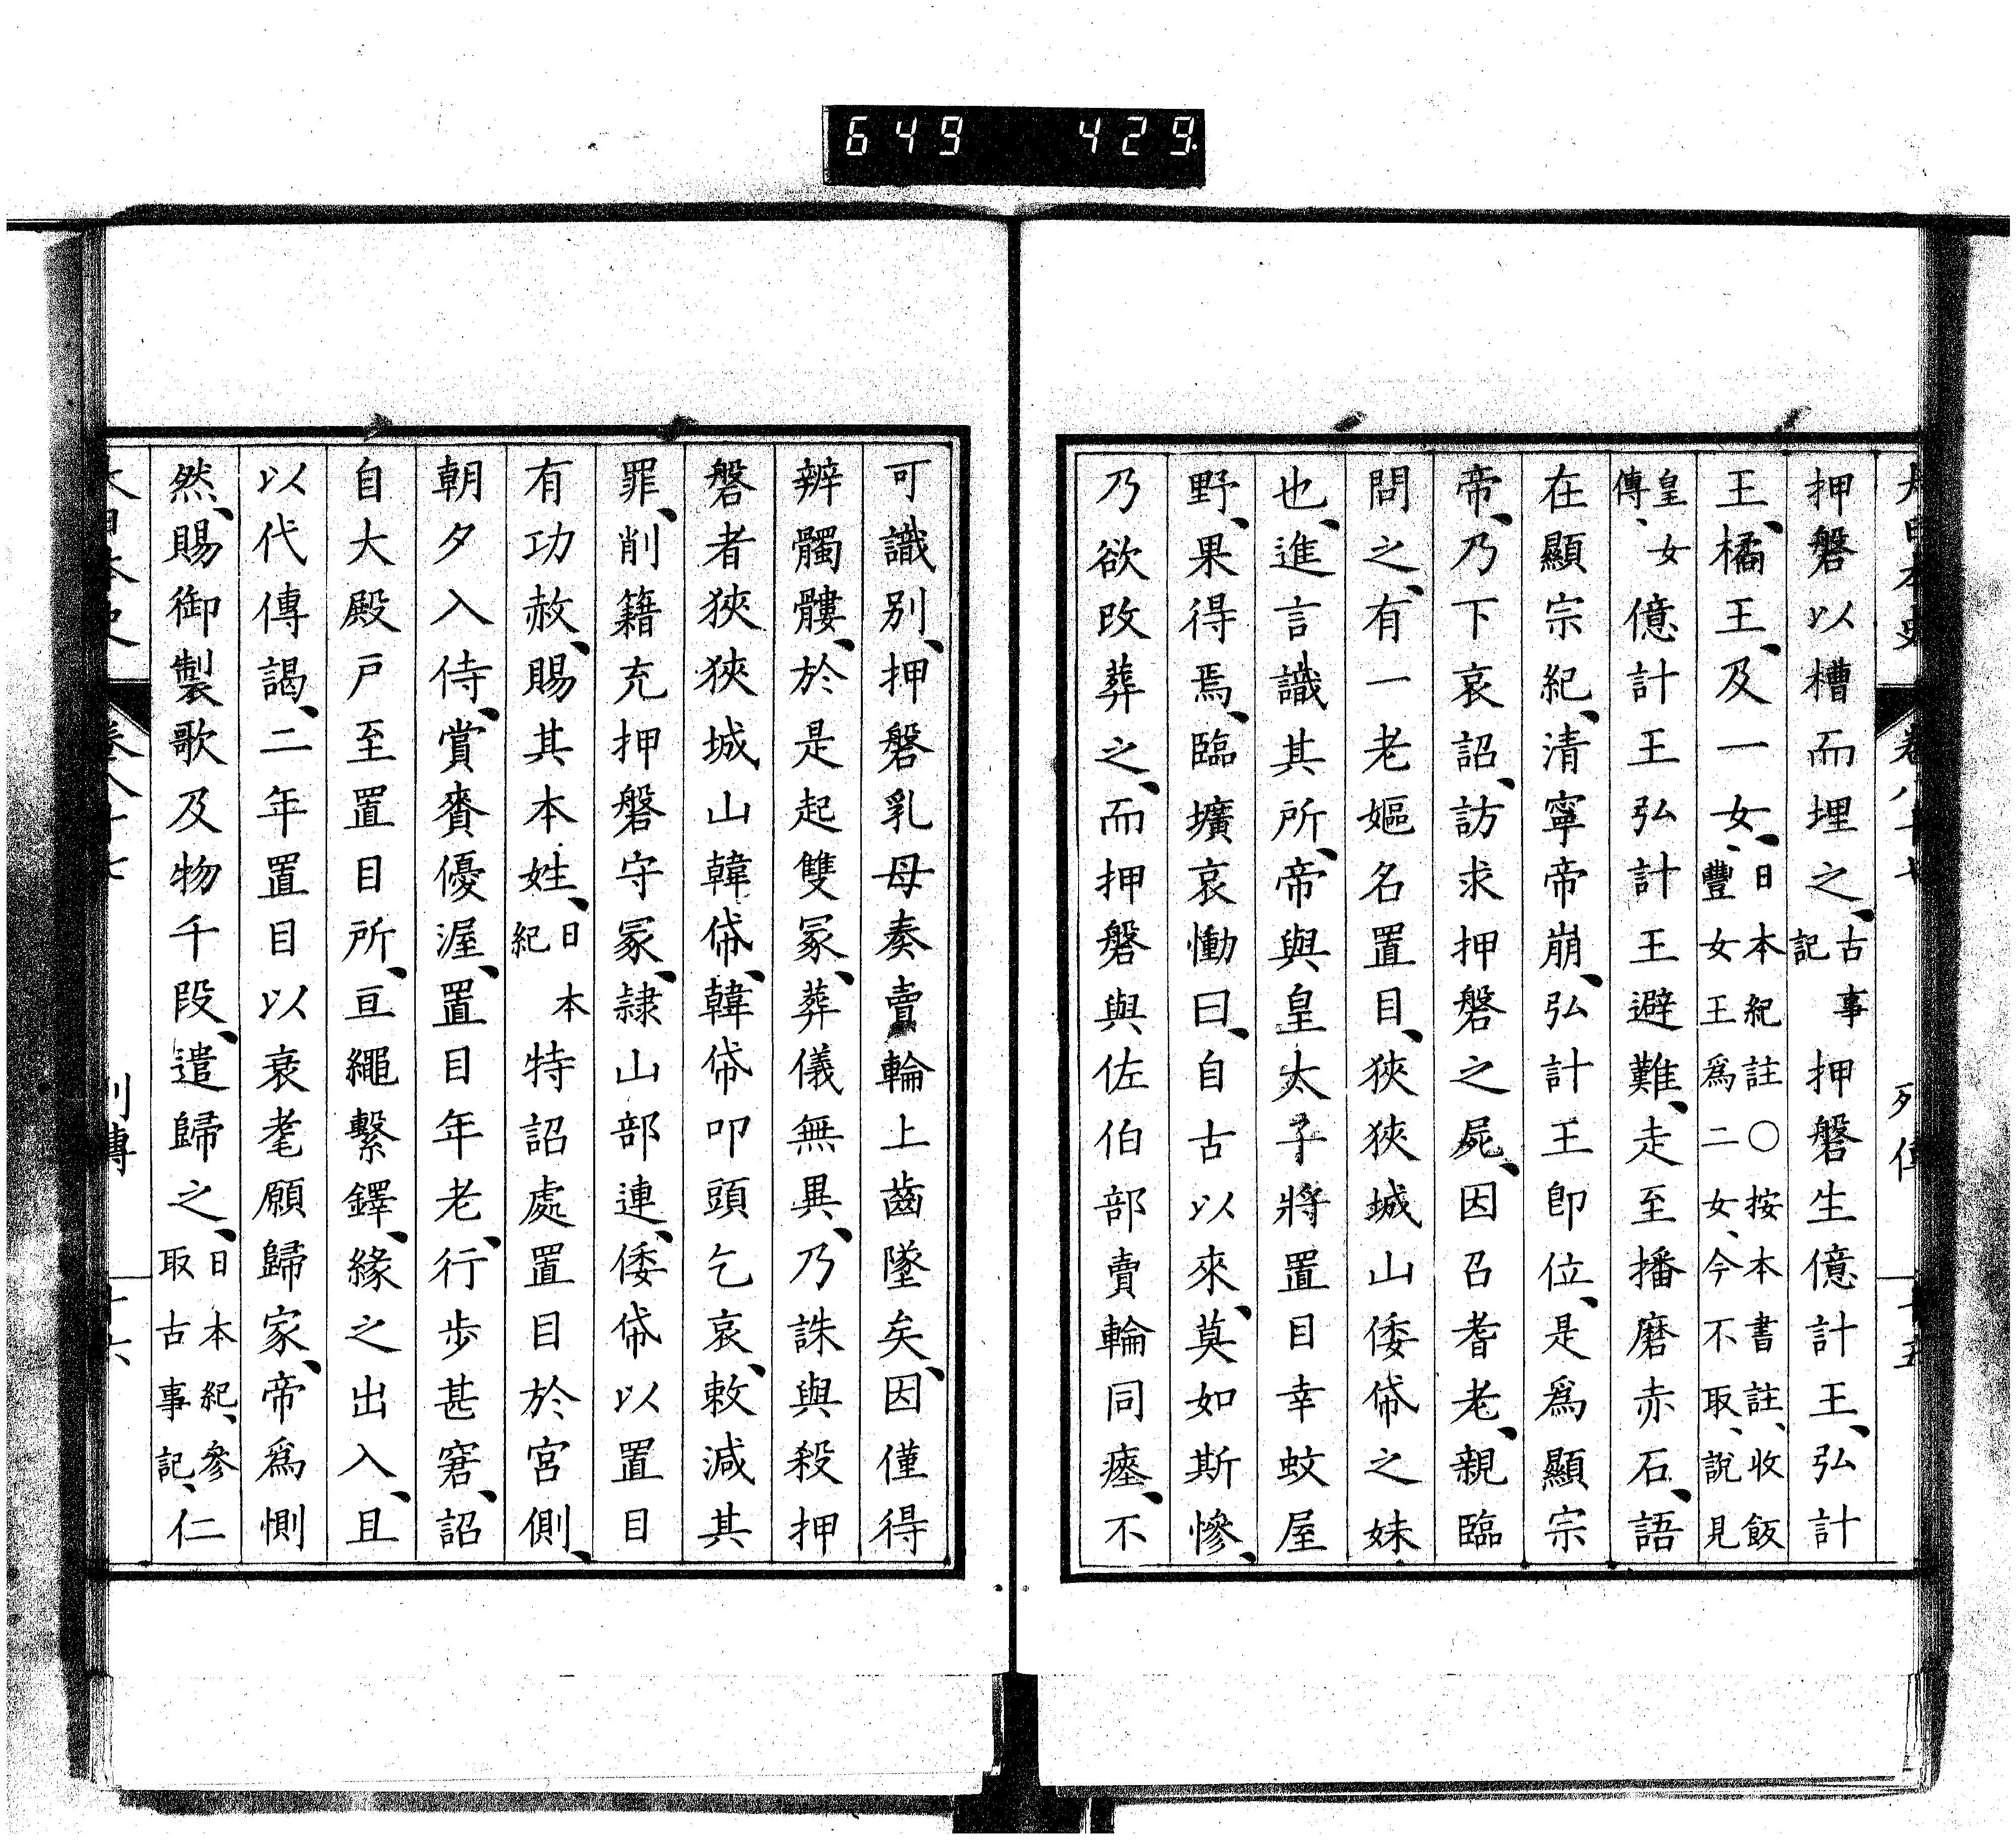 649 429
大日本史 卷八十七 列傳 十五
押磐以槽而埋之、古事記押磐生億計王、弘計
王、橘王、及一女、日本紀註○按本書註、收飯豐女王爲二女、今不取、說見
皇女傳、億計王弘計王避難、走至播磨赤石、語
在顯宗紀、清寧帝崩、弘計王即位、是爲顯宗
帝、乃下哀詔、訪求押磐之屍、因召耆老、親臨
問之、有一老嫗名置目、狹狹城山倭帒之妹
也、進言識其所、帝與皇太子將置目幸蚊屋
野、果得焉、臨壙哀慟曰、自古以來、莫如斯慘、
乃欲改葬之、而押磐與佐伯部賣輪同瘞、不
可識別、押磐乳母奏賣輪上齒墜矣、因僅得
辨髑髏、於是起雙冢、葬儀無異、乃誅與殺押
磐者狹狹城山韓帒、韓帒叩頭乞哀、敕減其
罪、削籍充押磐守冢、隸山部連、倭帒以置目
有功赦、賜其本姓、日本紀特詔處置目於宮側、
朝夕入侍、賞賚優渥、置目年老、行步甚窘、詔
自大殿戶至置目所、亘繩繫鐸、緣之出入、且
以代傳謁、二年置目以衰耄願歸家、帝爲惻
然、賜御製歌及物千段、遣歸之、日本紀、參取古事記、仁
大日本史 卷八十七 列傳 十六